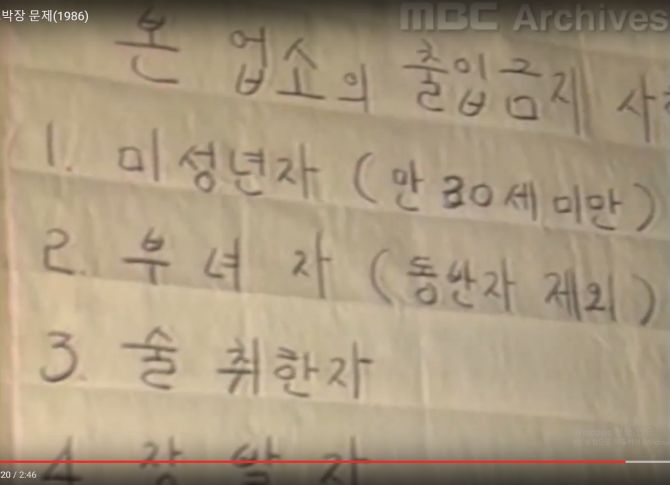 박장 문제(1986)
MBC Archives
본 업소의 출입금지 사
1. 미성년자 (만 30세 미만)
2. 부녀자 (동반자 제외)
3. 술 취한자
4. 장발자
20 / 2:46